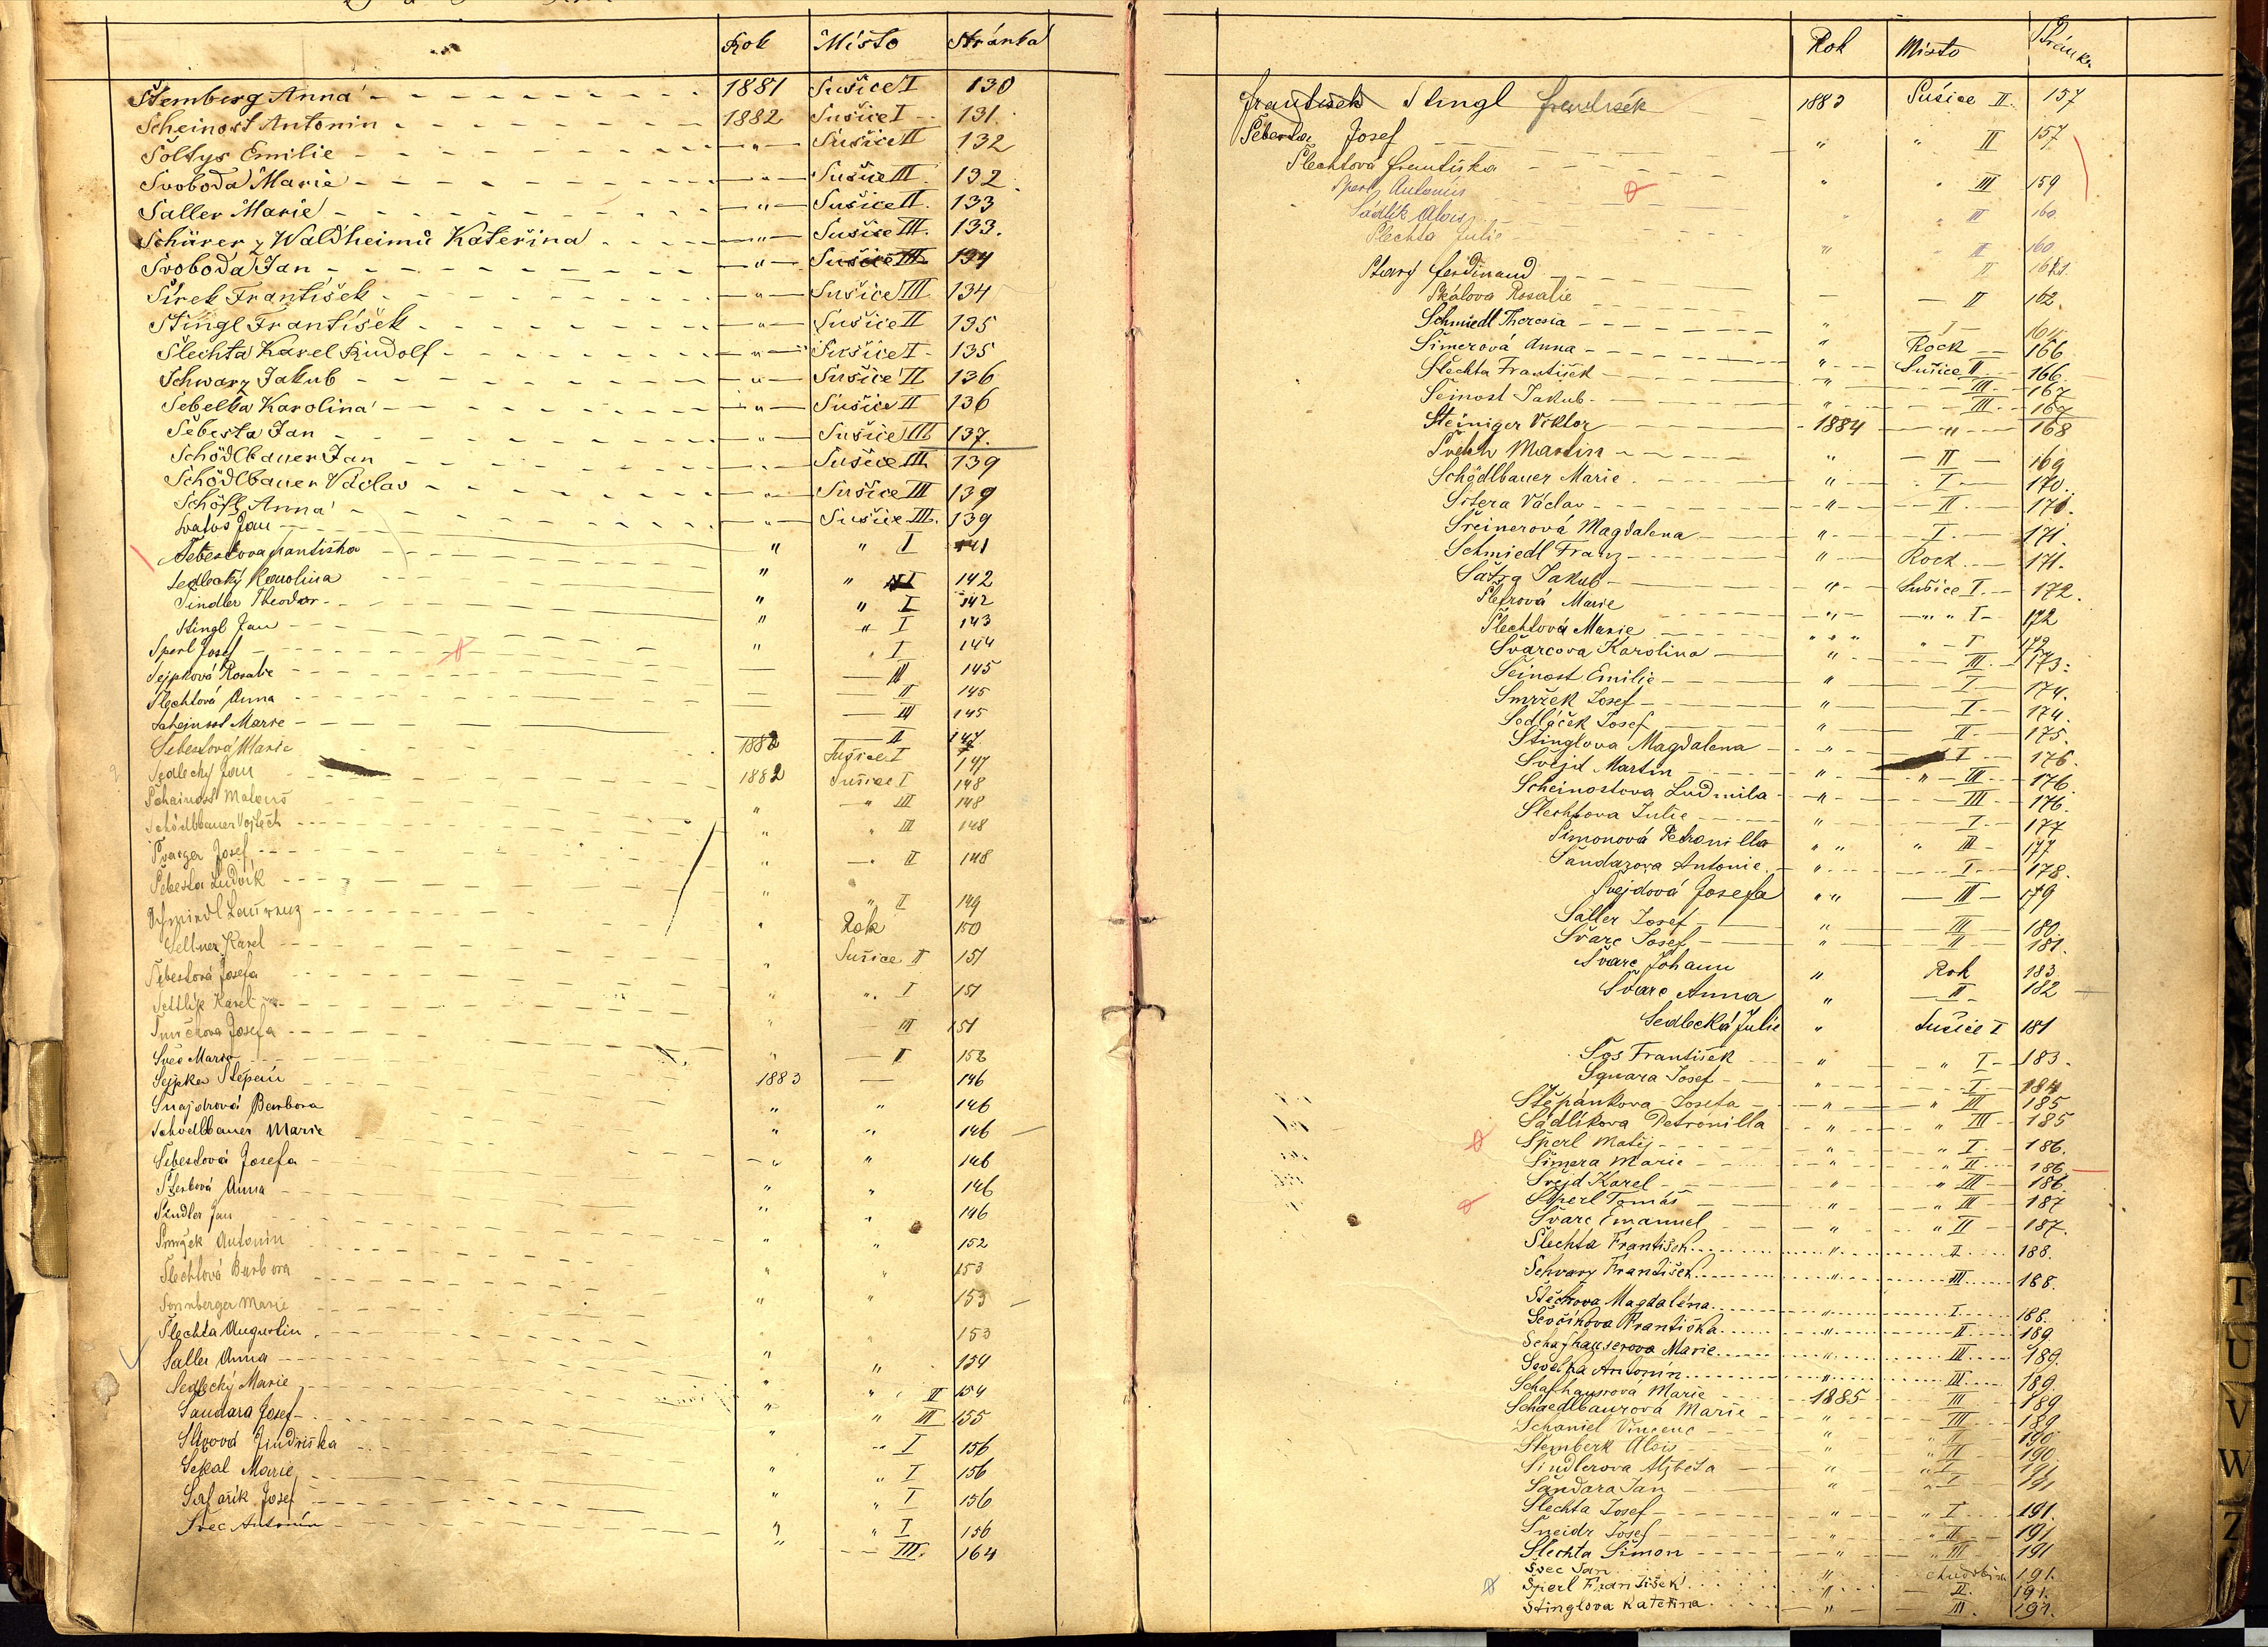 Rok Místo Stránka
Štemberg Anna 1881 Sušice I 130
Scheinost Antonin 1882 Sušice I 131.
Šoltys Emilie " Sušice II 132
Svoboda Marie " Sušice III 132
Saller Marie " Sušice II. 133
Schürer z Waldheimů Kateřina " Sušice III. 133.
Svoboda Jan " Sušice III 134
Širek František " Sušice III 134
Stingl František " Sušice II 135
Šlechta Karel Rudolf " Sušice I 135
Schwarz Jakub " Sušice II 136
Sebelka Karolina " Sušice II 136
Šebesta Jan " Sušice III 137.
Schödlbauer Jan " Sušice III 139
Schödlbauer Václav " Sušice III 139
Schöfl Anna " Sušice III. 139
Jan " " I 141
Šebestova Frantiska " " I 142
Sedlecký Karolina " " I 142
Šindler Theodor " " I 143
Stingl Jan " " I 144
Sperl Josef — III 145
Sejpková Rosalie — II 145
Šlechtová Anna — III 145
Scheinost Marie — II 147
Šebestová Marie 1882 Sušice I 147
Sedlecký Jan 1882 Sušice I 148
Scheinost Matouš " " III 148
Schödlbauer Vojtěch " " III 148
Švarger Josef " " II 148
Šebesta Ludvik " " I 149
Schmiedl Laurenz " Rok 150
Sellner Karel " Sušice II 151
Šebestová Josefa " " I 151
Karel " — III 151
Josefa " — I 152
Švec Marie 1883 — 146
Sejpka Štěpán " " 146
Šnajdrová Barbora " " 146
Schödlbauer Marie " " 146
Šebestová Josefa " " 146
Šterbová Anna " " 146
Šindler Jan " " 152
Smržek Antonin " " 153
Šlechtová Barbora " " 153
Sonnberger Marie " " 153
Šlechta Augustin " " 154
Saller Anna " " II 154
Sedlecký Marie " " III 155
Šandara Josef " " I 156
Jindřiška " " I 156
Sekal Marie " " I 156
Šafařik Josef " " I 156
Švec Antonín " — III. 164
Rok Místo Stránka
František Stingl František 1883 Sušice II. 157
Šebesta Josef " " II 157
Šlechtová Františka " " III 159
Sperl Antonín " " II 160
Sádlík Alois " " II 160
Šlechta Julie II 161
Starý Ferdinand — II 162.
Skálova Rosalie " — I — 164
Schmiedl Theresia " Rock 166
Šimerová Anna " Sušice II 166
Šlechta František " III. 167
Šeinost Jakub " III. 167
Steiniger Viktor 1884 " 168
Švehh Martin " — II — 169
Schödlbauer Marie " I 170.
Sitera Václav " II 171.
Šreinerová Magdalena " I 171.
Schmiedl Franz " Rock 171.
Šatra Jakub " Sušice I. 172.
Marie " " I 172
Šlechtová Marie " " I 172
Švarcova Karolina " III. 173.
Šeinost Emilie " I 174.
Smržek Josef " I 174.
Sedláček Josef " II 175.
Stinglova Magdalena " I 176.
Švejd Martin " " III 176.
Scheinostova Ludmila " III 176.
Slechtova Julie " I 177
Šimonová Petronilla " " " III 177
Šandarova Antonie " I. 178.
Švejdová Josefa " " — III — 179
Saller Josef " III 180.
Švarc Josef " II 181.
Švarc Johann " Rok 183
Švarc Anna " — II — 182
Sedlecká Julie " Sušice I 181
Šos František " " I 183.
Josef " I 184
Štěpánkova Josefa " " III 185
Sádlíkova Petronilla " " III 185
Šperl Matěj " " I 186.
Šimera Marie " " II 186
Švejd Karel " " III 186
Šperl Tomáš " " III 187
Švarc Emanuel " " II 187.
Šlechta František " I 188.
Schvarz František " III 188.
Magdaléna " I 188.
Ševčíkova Františka " II 189.
Schafhauserova Marie " III 189.
Antonín " III 189.
Schafhausrová Marie 1885 III 189
Schaedlbaurová Marie " III 189
Schaniel Vincenc " II 190.
Štemberk Alois " " II 190.
Šindlerova Alžběta " " I 191
Šandara Jan " " I 191
Šlechta Josef " " I 191.
Šneidr Josef " " II 191
Šlechta Šimon " " III 191
Švec Jan " 191.
Šperl František " II. 191.
Štinglova Kateřina " III. 191.
T
U
V
W
Z